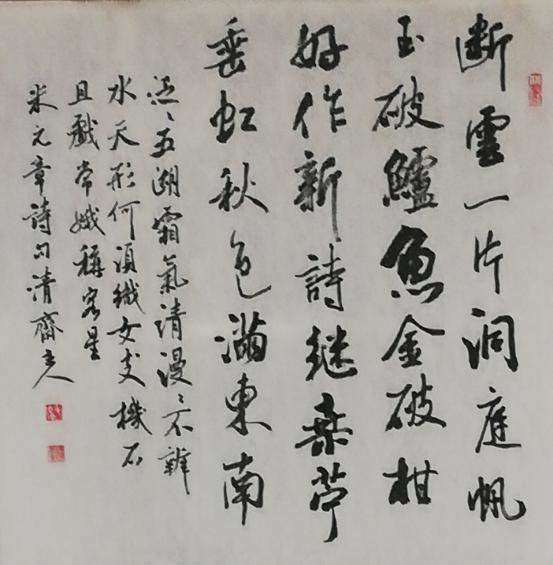 断雲一片洞庭帆
玉破鱸魚金破柑
好作新詩継桑苧
垂虹秋色満東南
泛〻五湖霜氣清漫〻不辨
水天形何須織女支機石
且戲常娥稱客星
米元章詩句清齋主人